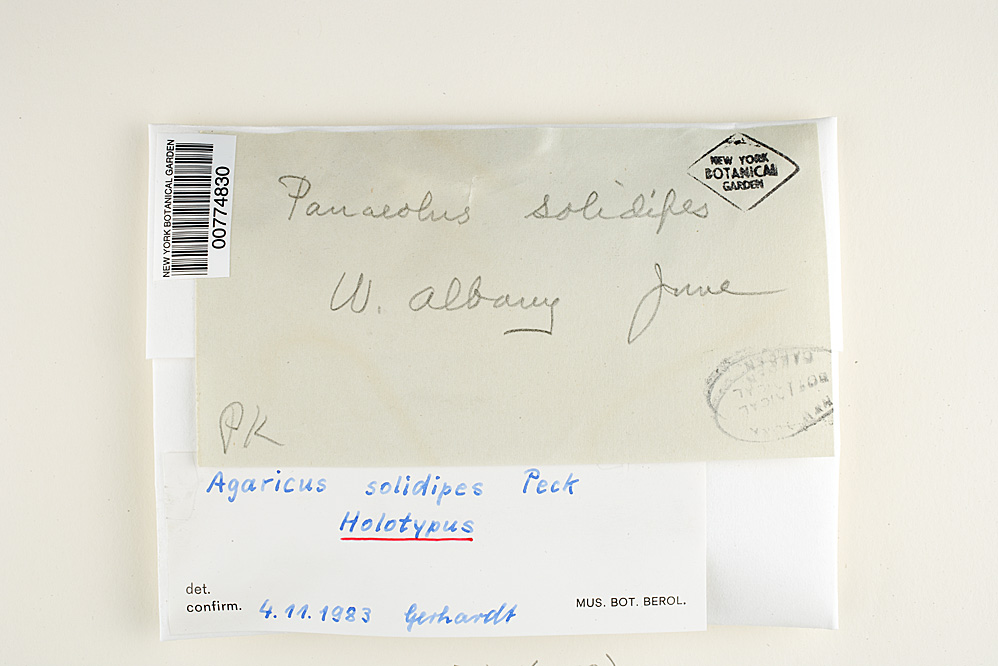 NEW YORK BOTANICAL GARDEN
00774830
NEW YORK
BOTANICAL
GARDEN
Panaeolus solidipes
W. Albany June
NEW YORK
BOTANICAL
GARDEN
P.K
Agaricus solidipes Peck
Holotypus
det.
confirm. 4.11.1983 Gerhardt
MUS. BOT. BEROL.